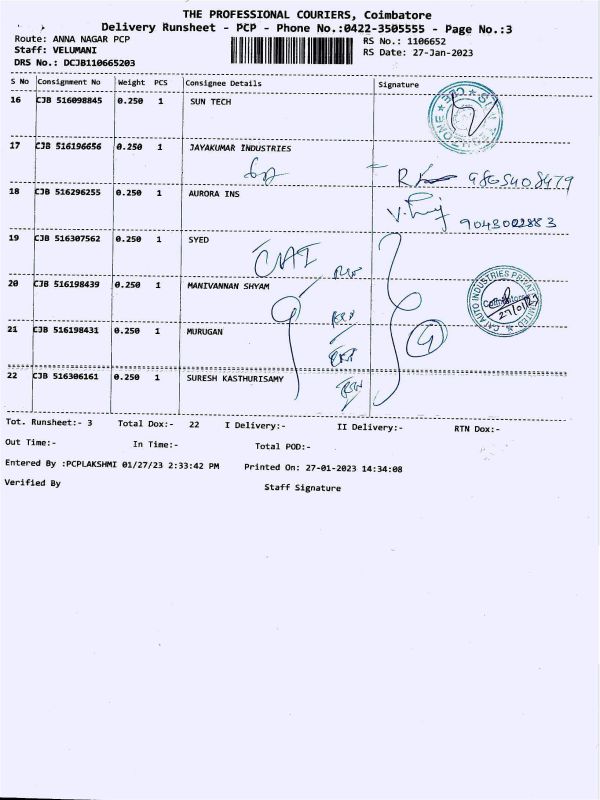 THE PROFESSIONAL COURIERS, Coimbatore
Delivery Runsheet - PCP - Phone No.:0422-3505555 - Page No.:3
Route: ANNA NAGAR PCP
RS No.: 1106652
Staff: VELUMANI
RS Date: 27-Jan-2023
DRS No.: DCJB110665203
S No Consignment No Weight PCS Consignee Details Signature
16 CJB 516098845 0.250 1 SUN TECH
17 CJB 516196656 0.250 1 JAYAKUMAR INDUSTRIES
9865408479
18 CJB 516296255 0.250 1 AURORA INS
9043002883
19 CJB 516307562 0.250 1 SYED
20 CJB 516198439 0.250 1 MANIVANNAN SHYAM
CAI AUTO INDUSTRIES PRIVATE LIMITED
Coimbatore
27/01/23
21 CJB 516198431 0.250 1 MURUGAN
4
22 CJB 516306161 0.250 1 SURESH KASTHURISAMY
Tot. Runsheet:- 3 Total Dox:- 22 I Delivery:- II Delivery:- RTN Dox:-
Out Time:- In Time:- Total POD:-
Entered By :PCPLAKSHMI 01/27/23 2:33:42 PM Printed On: 27-01-2023 14:34:08
Verified By Staff Signature